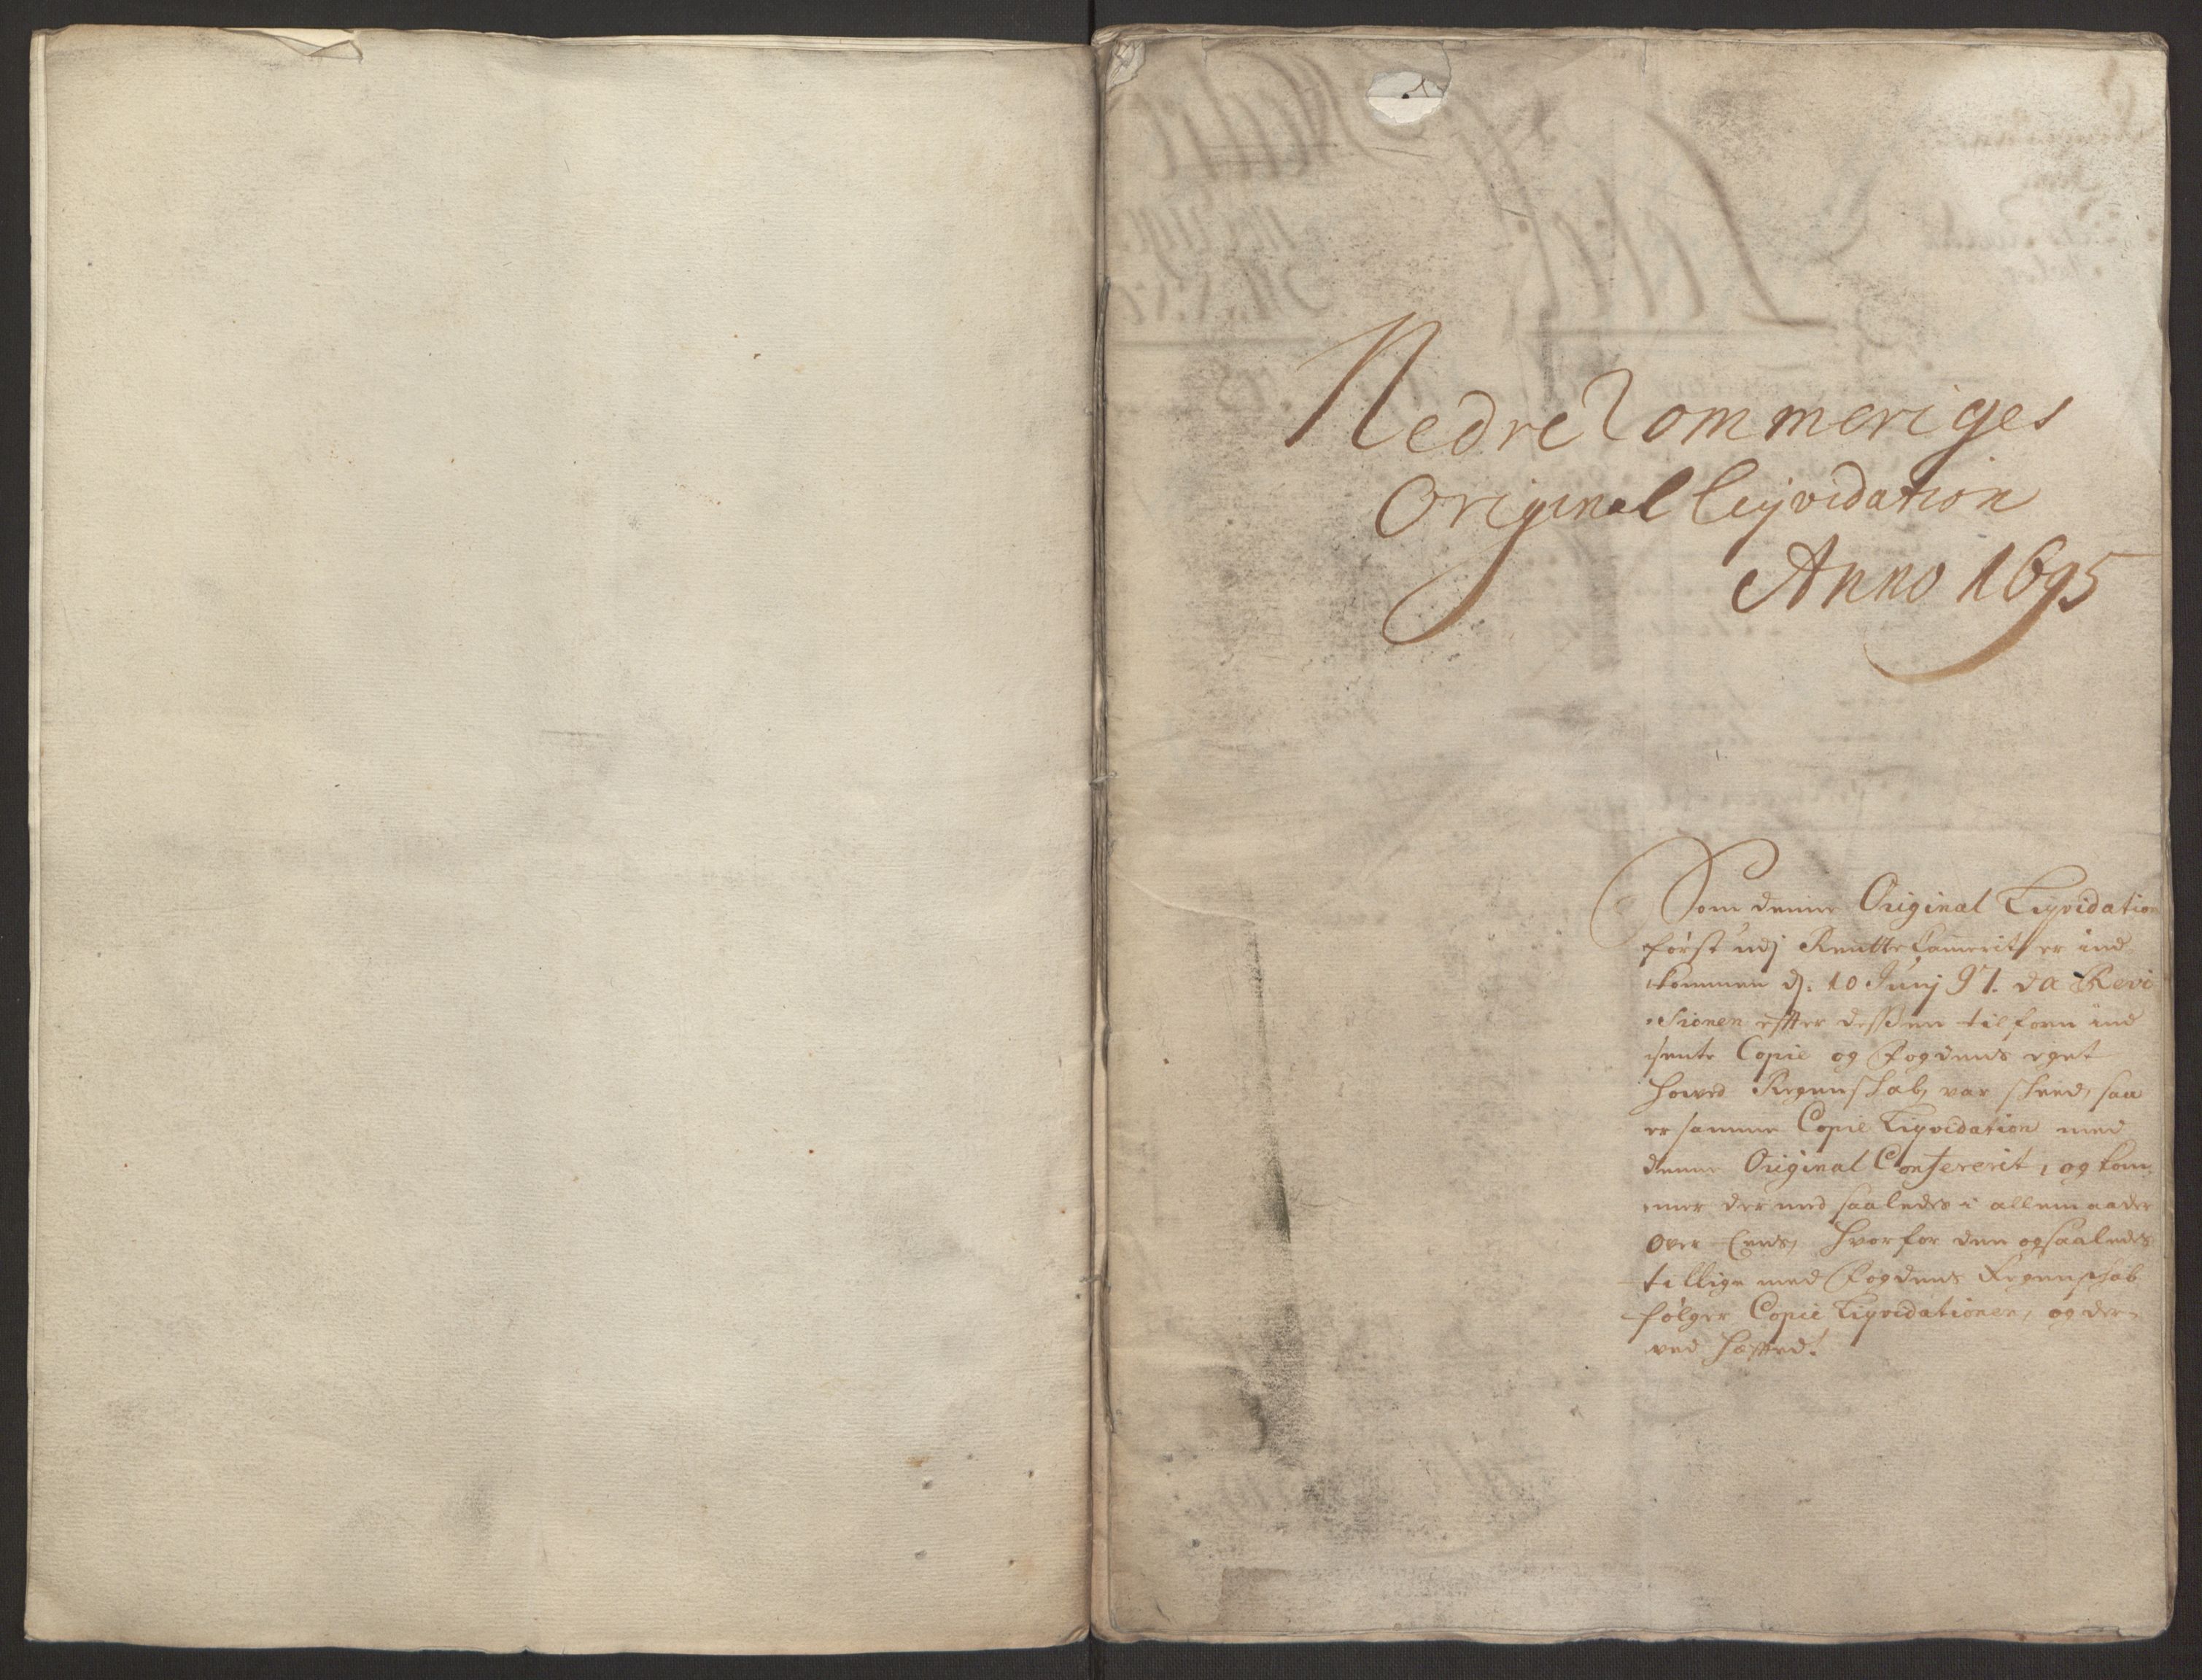 Nedre Rommeriges
Original liqvidation
Anno 1695
Som denne Original Liqvidation
først udj Rentte Camerit er ind
kommen dj. 10 Junj 97. da Revi
sionen effter dessen tilforn ind
sente Copie og Fogdens eget
Hoved Regenskab, var skeed, saa
er samme Copie Liqvidation med
denne Original Confererit, og kom
mer dermed saaledes i alle maader
over Eens, hvorfor den ogsaaledes
tillige med Fogdens Regenskab
følger Copie Liqvidationen, og der
ved hæfted.